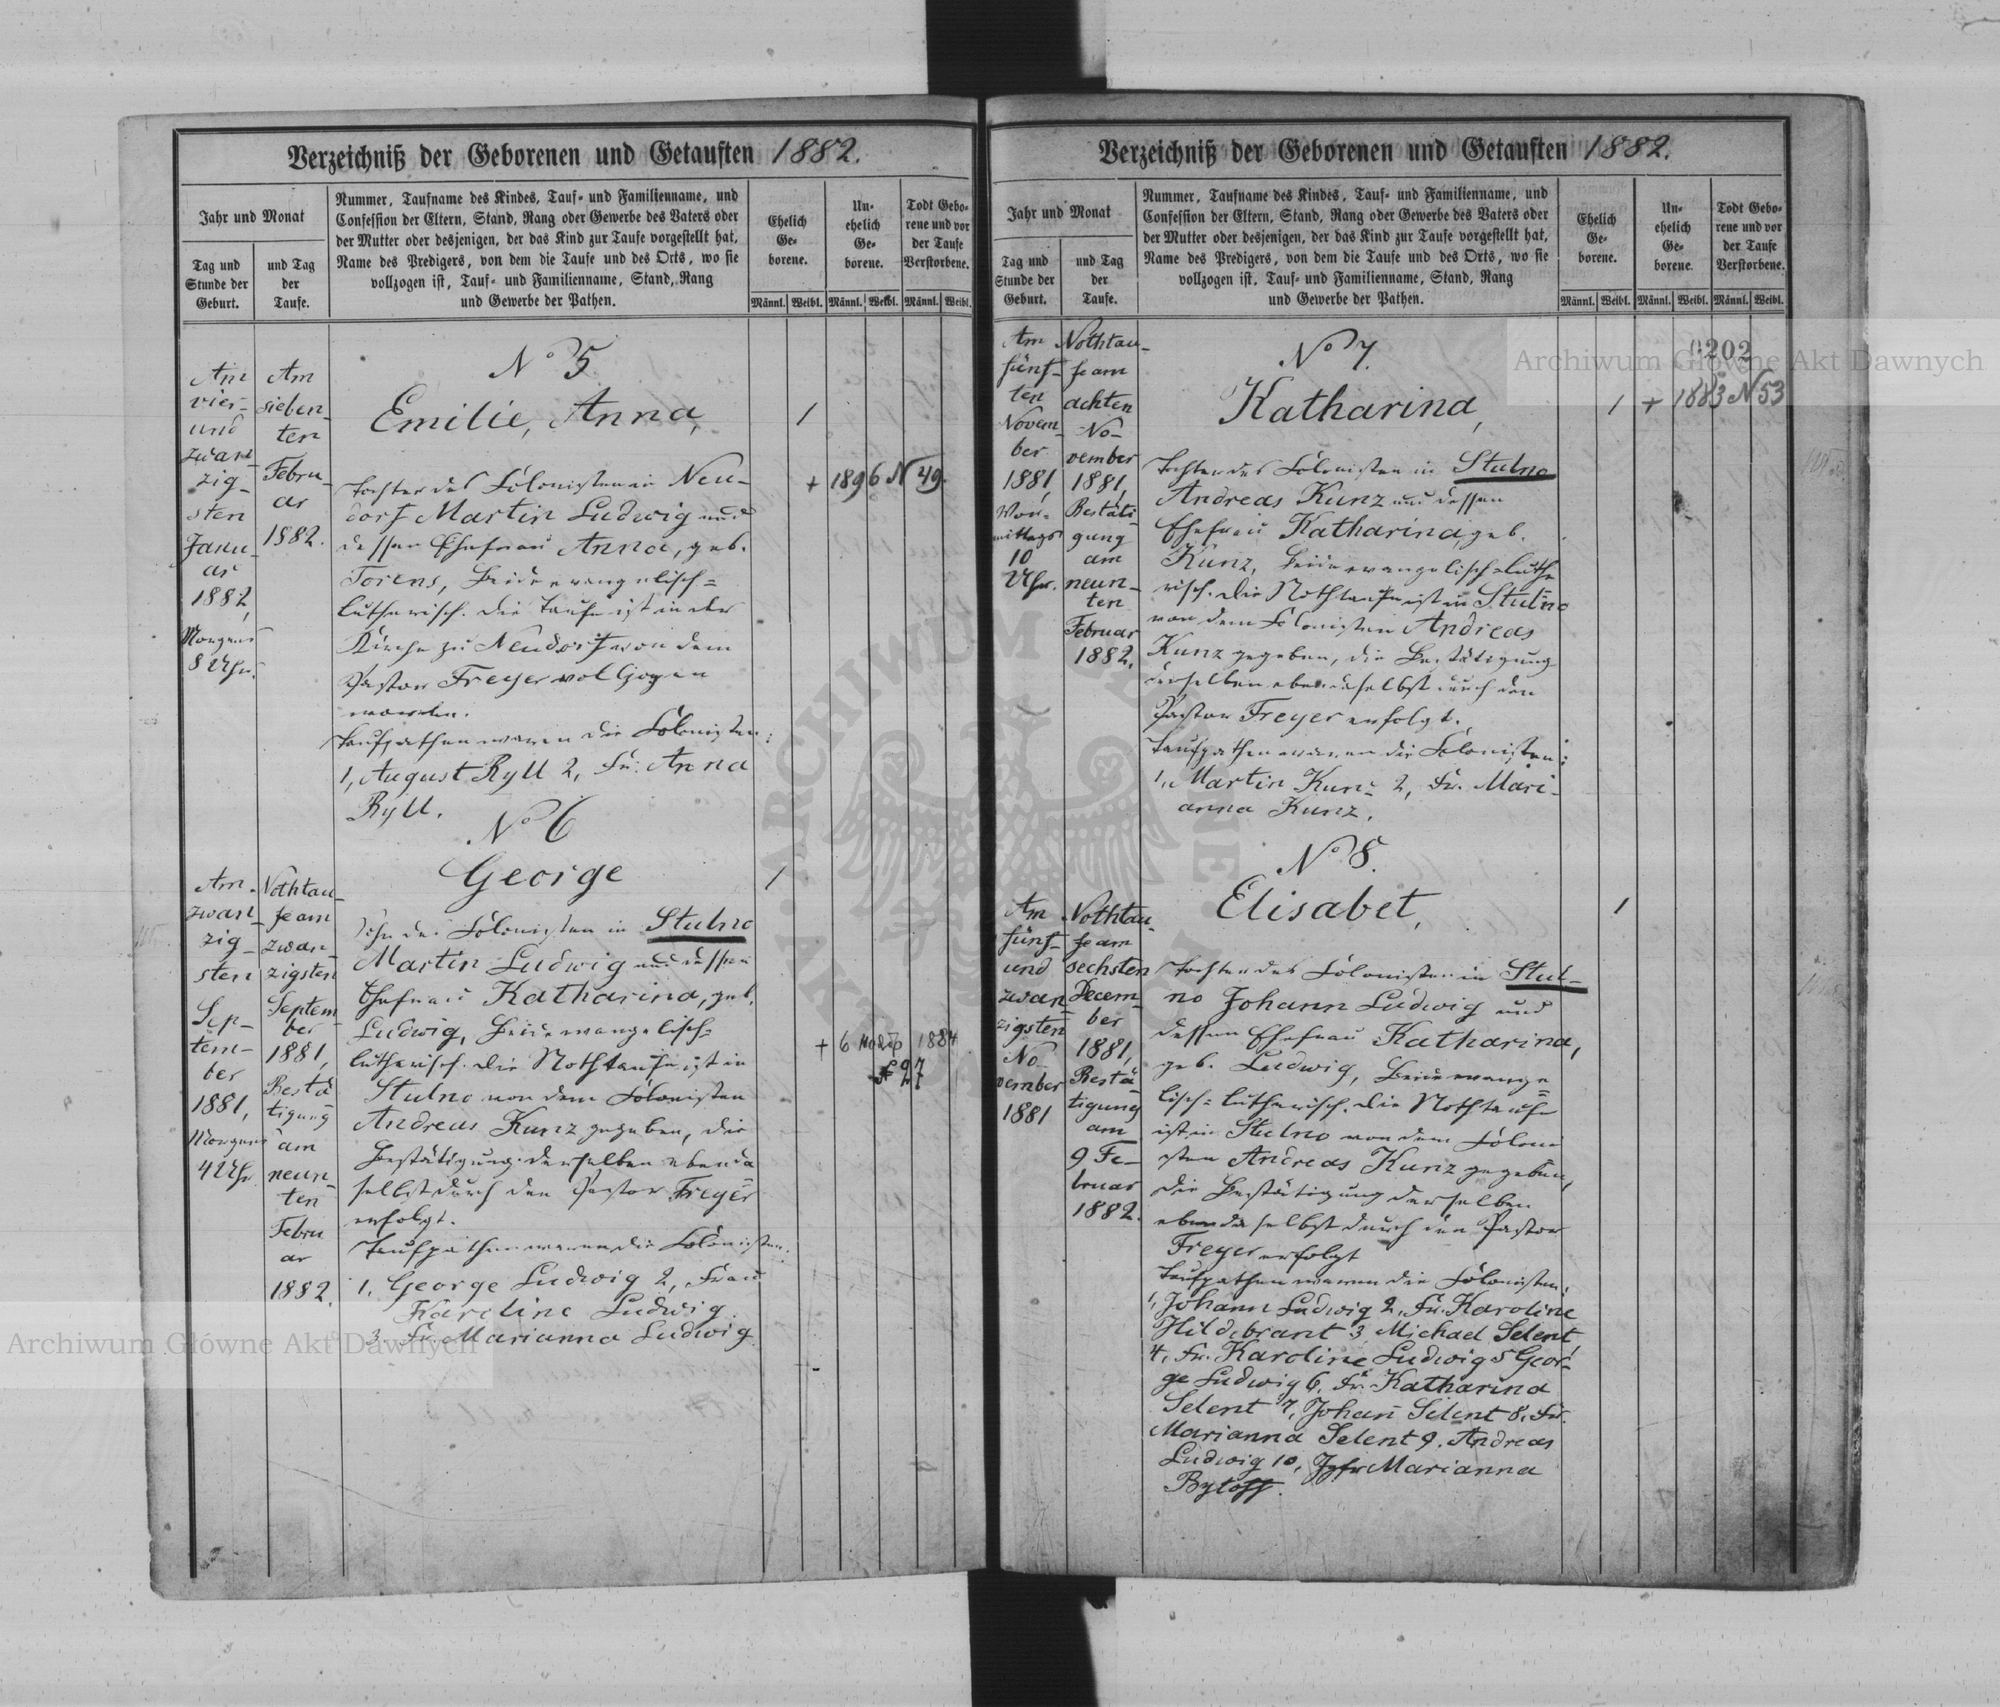 Verzeichniß der Geborenen und Getauften 1882.
Jahr und Monat
Tag und
Stunde der
Geburt.
und Tag
der
Taufe.
Nummer, Taufname des Kindes, Tauf- und Familienname, und
Confession der Eltern, Stand, Rang oder Gewerbe des Vaters oder
der Mutter oder desjenigen, der das Kind zur Taufe vorgestellt hat,
Name des Predigers, von dem die Taufe und des Orts, wo sie
vollzogen ist, Tauf- und Familienname, Stand, Rang
und Gewerbe der Pathen.
Ehelich
Ge-
borene.
Un-
ehelich
Ge-
borene.
Todt Gebo-
rene und vor
der Taufe
Verstorbene.
Männl. Weibl. Männl. Weibl. Männl. Weibl.
Am
vier-
und
zwan-
zig-
sten
Janu-
ar
1882,
Morgens
8 Uhr.
Am
sieben-
ten
Febru-
ar
1882.
No 5
Emilie, Anna,
Tochter des Kolonisten in Neu-
dorf Martin Ludwig und
dessen Ehefrau Anna, geb.
Torens, Beide evangelisch-
lutherisch. Die Taufe ist in der
Kirche zu Neudorf von dem
Pastor Freyer vollzogen
worden.
Taufpathen waren die Kolonisten:
1, August Ryll 2, Fr. Anna
Ryll.
1
+ 1896 N 49.
Am
zwan-
zig-
sten
Sep-
tem-
ber
1881,
Morgens
4 Uhr
Nothtau-
fe am
zwan-
zigsten
Septem-
ber
1881,
Bestä-
tigung
am
neun-
ten
Febru
ar
1882.
No 6
George
Sohn des Kolonisten in Stulno
Martin Ludwig und dessen
Ehefrau Katharina, geb.
Ludwig, Beide evangelisch-
lutherisch. Die Nothtaufe ist in
Stulno von dem Kolonisten
Andreas Kunz gegeben, die
Bestätigung derselben ebenda
selbst durch den Pastor Freyer
erfolgt.
Taufpathen waren die Kolonisten:
1, George Ludwig 2, Frau
Karoline Ludwig
3. Fr. Marianna Ludwig
1
+ 6 1884
N 27
Verzeichniß der Geborenen und Getauften 1882.
Jahr und Monat
Tag und
Stunde der
Geburt.
und Tag
der
Taufe.
Nummer, Taufname des Kindes, Tauf- und Familienname, und
Confession der Eltern, Stand, Rang oder Gewerbe des Vaters oder
der Mutter oder desjenigen, der das Kind zur Taufe vorgestellt hat,
Name des Predigers, von dem die Taufe und des Orts, wo sie
vollzogen ist, Tauf- und Familienname, Stand, Rang
und Gewerbe der Pathen.
Ehelich
Ge-
borene.
Un-
ehelich
Ge-
borene.
Todt Gebo-
rene und vor
der Taufe
Verstorbene.
Männl. Weibl. Männl. Weibl. Männl. Weibl.
202
Am
fünf-
ten
Novem-
ber
1881,
Vor-
mittags
10
Uhr.
Nothtau-
fe am
achten
No-
vember
1881,
Bestäti-
gung
am
neun-
ten
Februar
1882.
No 7.
Katharina,
Tochter des Kolonisten in Stulno
Andreas Kunz und dessen
Ehefrau Katharina, geb.
Kunz, Beide evangelisch-luthe
risch. Die Nothtaufe ist in Stulno
von dem Kolonisten Andreas
Kunz gegeben, die Bestätigung
derselben ebendaselbst durch den
Pastor Freyer erfolgt.
Taufpathen waren die Kolonisten:
1, Martin Kunz 2, Fr. Mari-
anna Kunz.
1
+ 1883 N 53
Am
fünf-
und
zwan-
zigsten
No-
vember
1881
Nothtau-
fe am
sechsten
Decem-
ber
1881,
Bestä-
tigung
am
9 Fe-
bruar
1882.
No 8.
Elisabet,
Tochter des Kolonisten in Stul-
no Johann Ludwig und
dessen Ehefrau Katharina,
geb. Ludwig, Beide evange-
lisch-lutherisch. Die Nothtaufe
ist in Stulno von dem Koloni
sten Andreas Kunz gegeben,
die Bestätigung derselben
ebendaselbst durch den Pastor
Freyer erfolgt
Taufpathen waren die Kolonisten:
1, Johann Ludwig 2, Fr. Karoline
Hildebrant 3, Michael Selent,
4, Fr. Karoline Ludwig 5 Geor-
ge Ludwig 6, Fr. Katharina
Selent 7, Johan Selent 8, Fr.
Marianna Selent 9. Andreas
Ludwig 10, Jgfr Marianna
Bytoff.
1
Archiwum Główne Akt Dawnych
Archiwum Główne Akt Dawnych